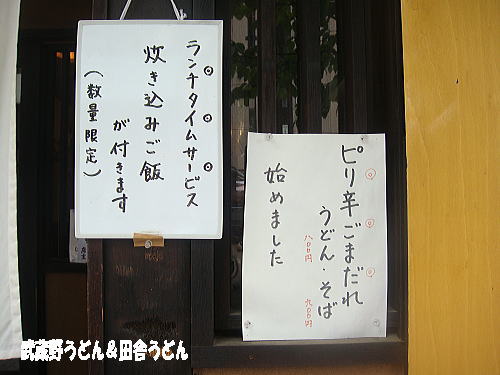 ランチタイムサービス
炊き込みご飯
が付きます
（数量限定）
ピリ辛ごまだれ
うどん・そば
八〇〇円
九〇〇円
始めました
武蔵野うどん＆田舎うどん